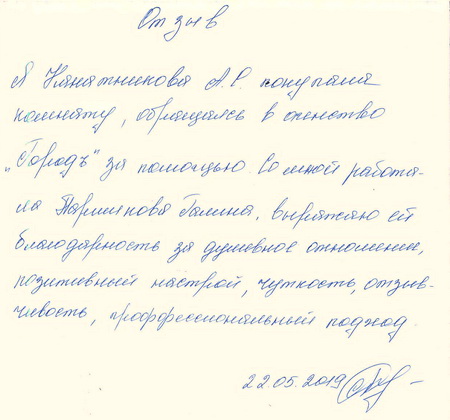 Отзыв
Я Княжникова А.Р. покупала
комнату, обращаясь в агенство
„Городъ" за помощью. Со мной работа-
ла Паршикова Галина, выражаю ей
благодарность за душевное отношение,
позитивный настрой, чуткость, отзыв-
чивость, проффессиональный подход
22 05. 2019